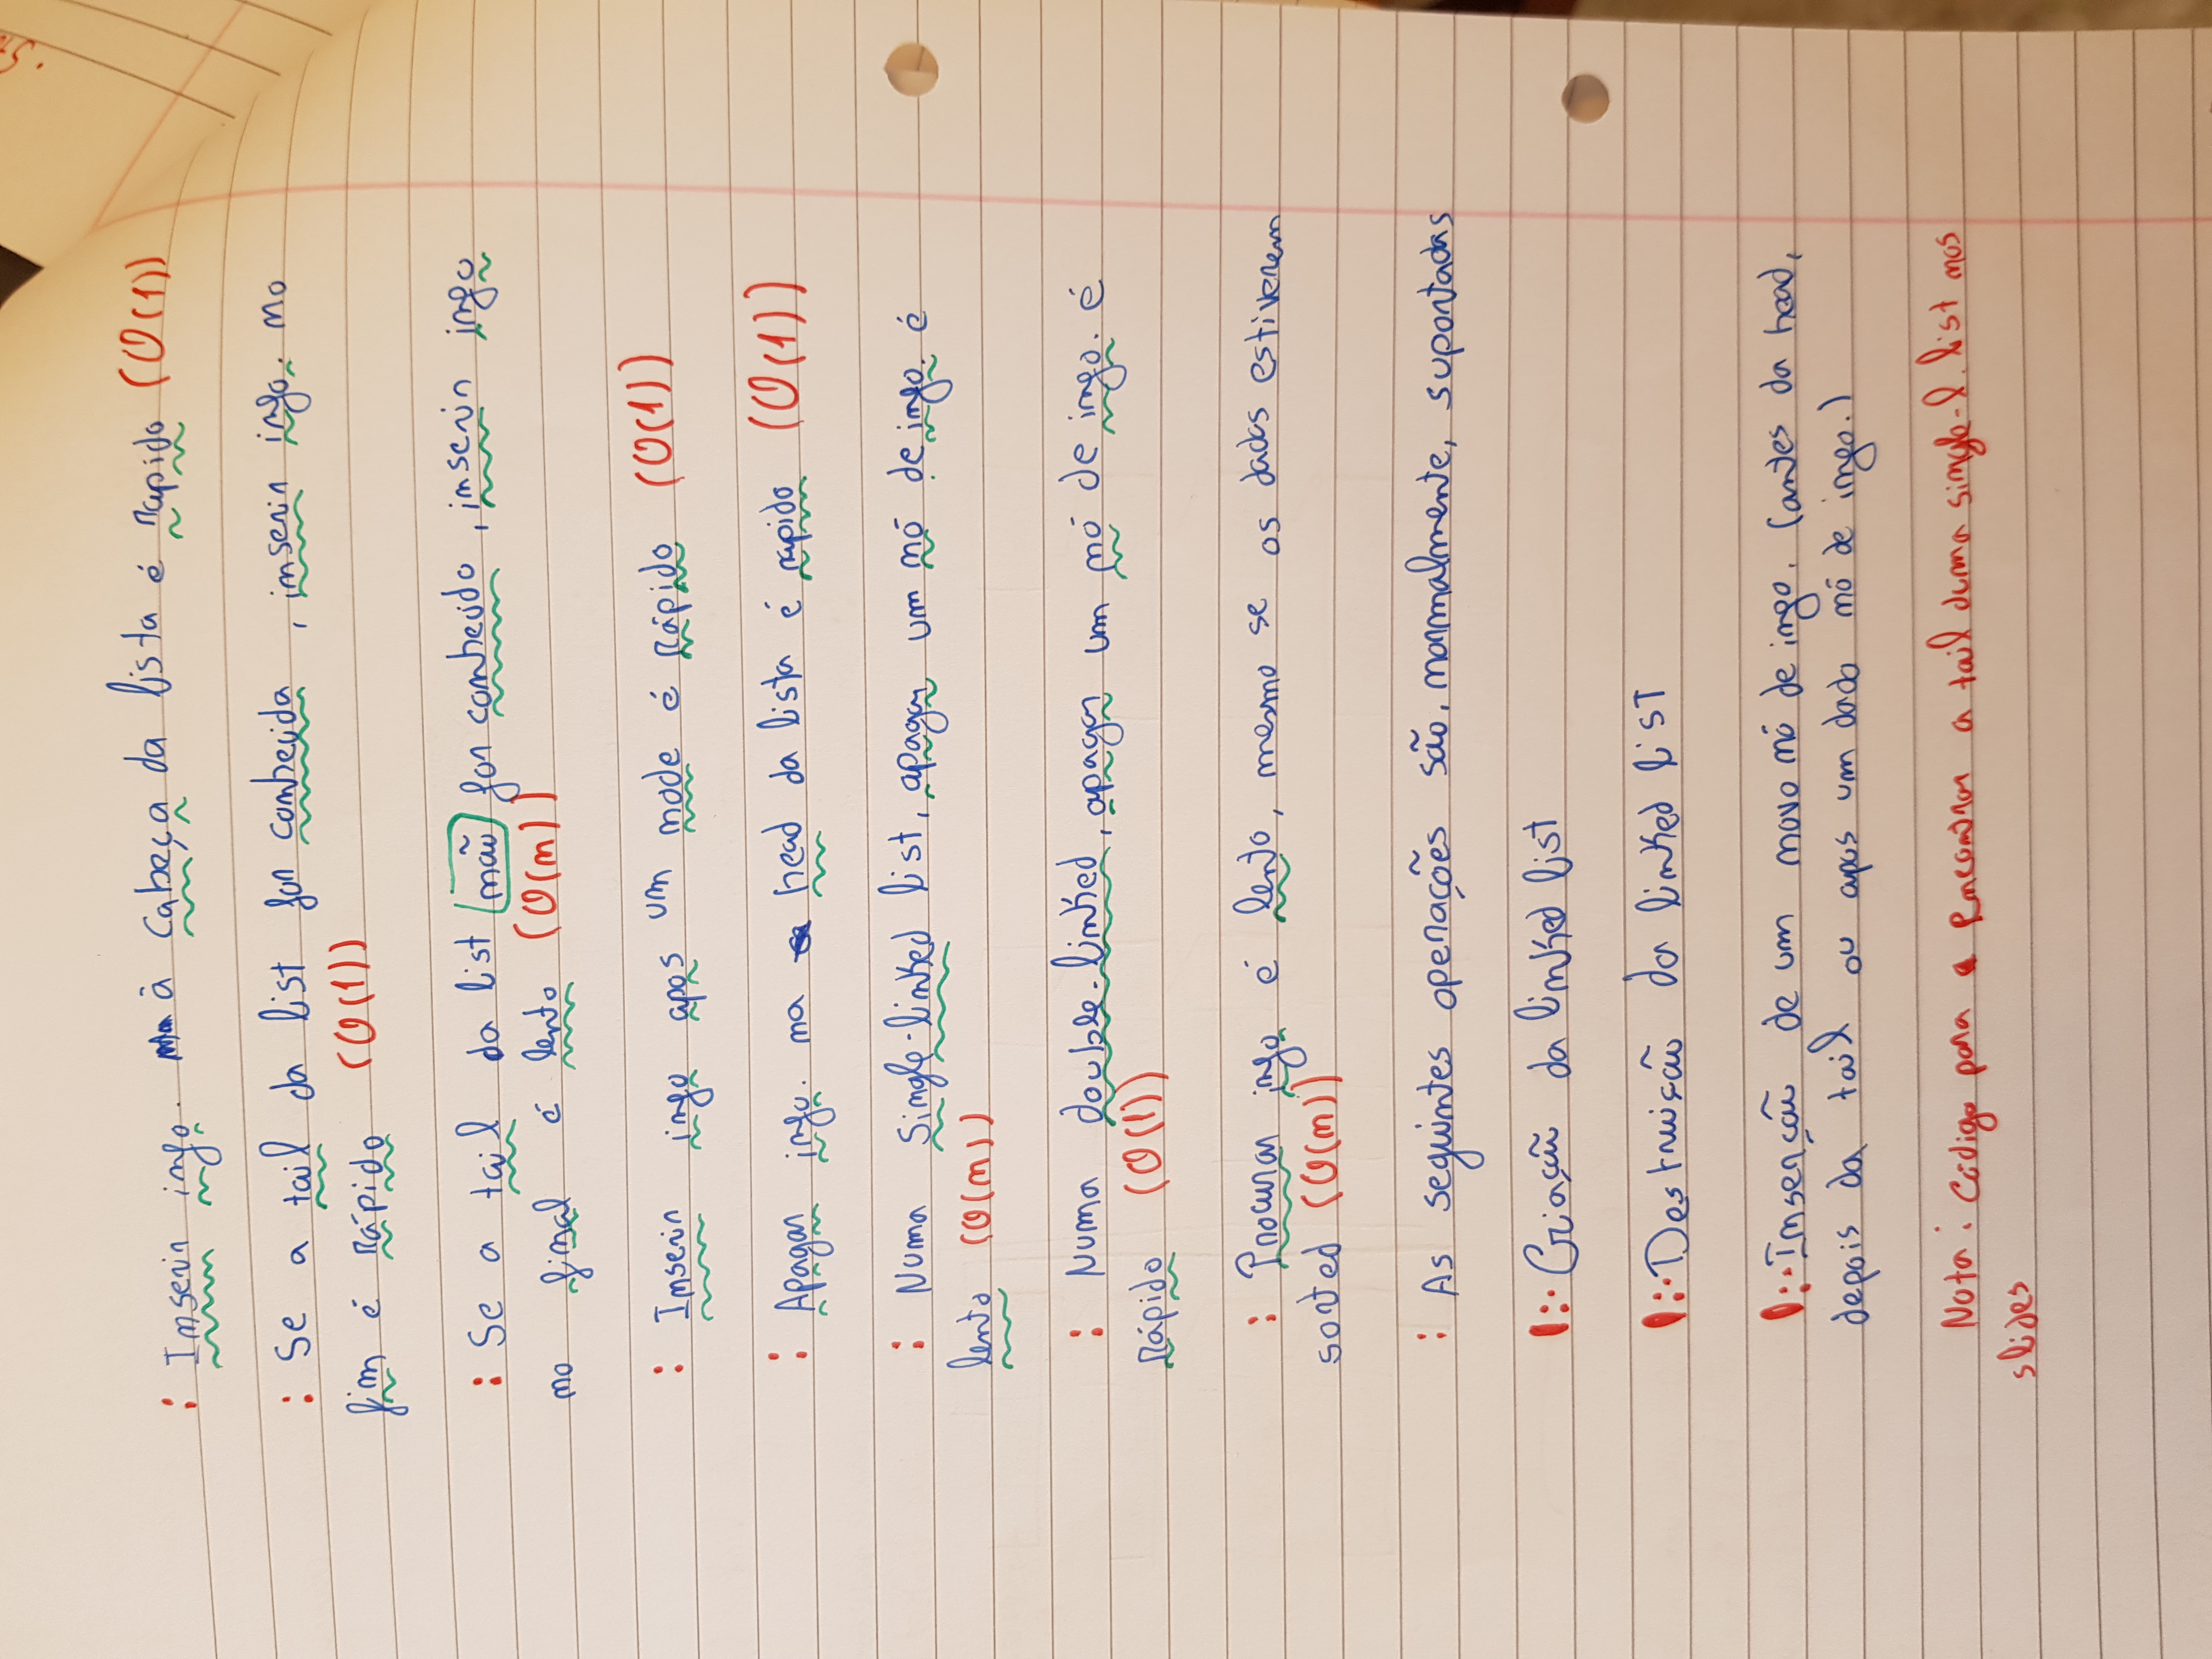 : Inserir info. à cabeça da lista é rapido (O(1))
: Se a tail da list for conhecida, inserir info. no
fim é rápido (O(1))
: Se a tail da list não for conhecido, inserir info
no final é lento (O(n))
: Inserir info apos um node é rápido (O(1))
: Apagar info. na head da lista é rapido (O(1))
: Numa single-linked list, apagar um nó de info. é
lento (O(n))
: Numa double-linked, apagar um nó de info. é
rápido (O(1))
: Procurar info é lento, mesmo se os dados estiverem
sorted (O(n))
: As seguintes operações são, normalmente, suportadas
: Criação da linked list
: Destruição da linked list
: Inserção de um novo nó de info. (antes da head,
depois da tail ou apos um dado nó de info.)
Nota: Código para encontrar a tail duma single-l. list nos
slides